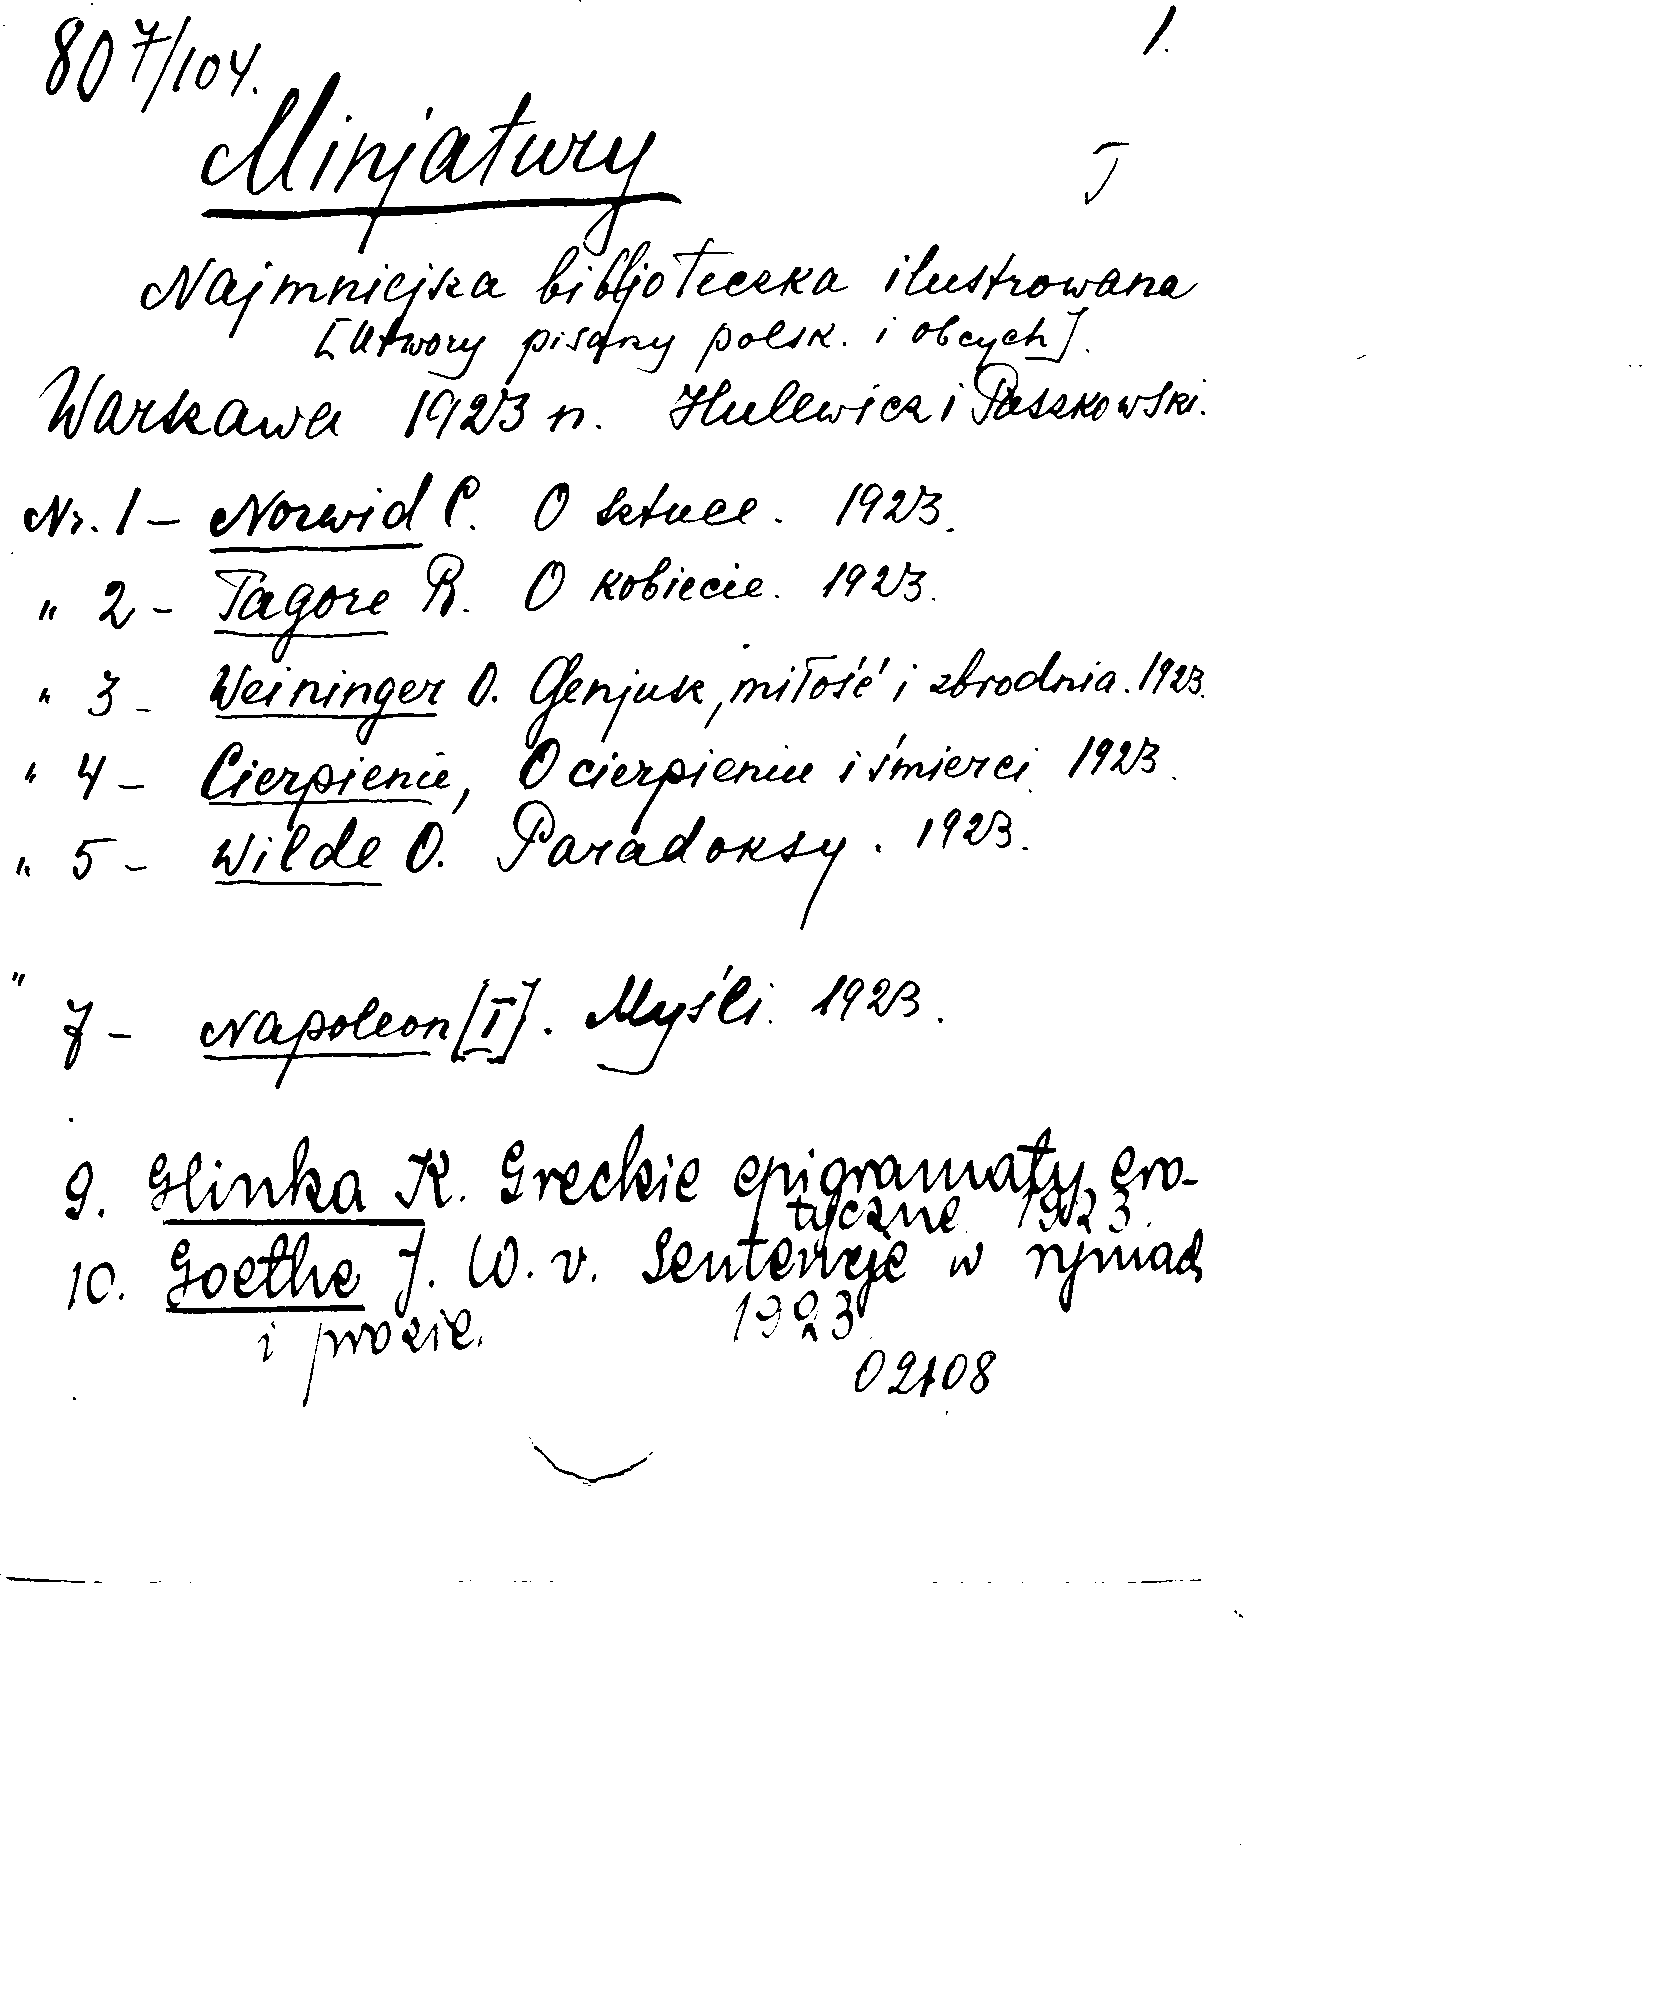 80 7/104. 1.
Minjatury
Najmniejsza bibljoteczka ilustrowana
[Utwory pisany polsk. i obcych].
Warszawa 1923 n. Hulewicz i Paszkowski.
Nr. 1 - Norwid C. O sztuce. 1923.
" 2 - Tagore R. O kobiecie. 1923.
" 3 - Weininger O. Genjusz, miłość i zbrodnia. 1923.
" 4 - Cierpienie, O cierpieniu i śmierci. 1923.
" 5 - Wilde O. Paradoksy. 1923.
" 7 - Napoleon [I]. Myśli. 1923.
9. Glinka K. Greckie epigramaty ero-
tyczne 1923.
10. Goethe J. W. v. Sentencje w rymach
i prozie. 1923
02108